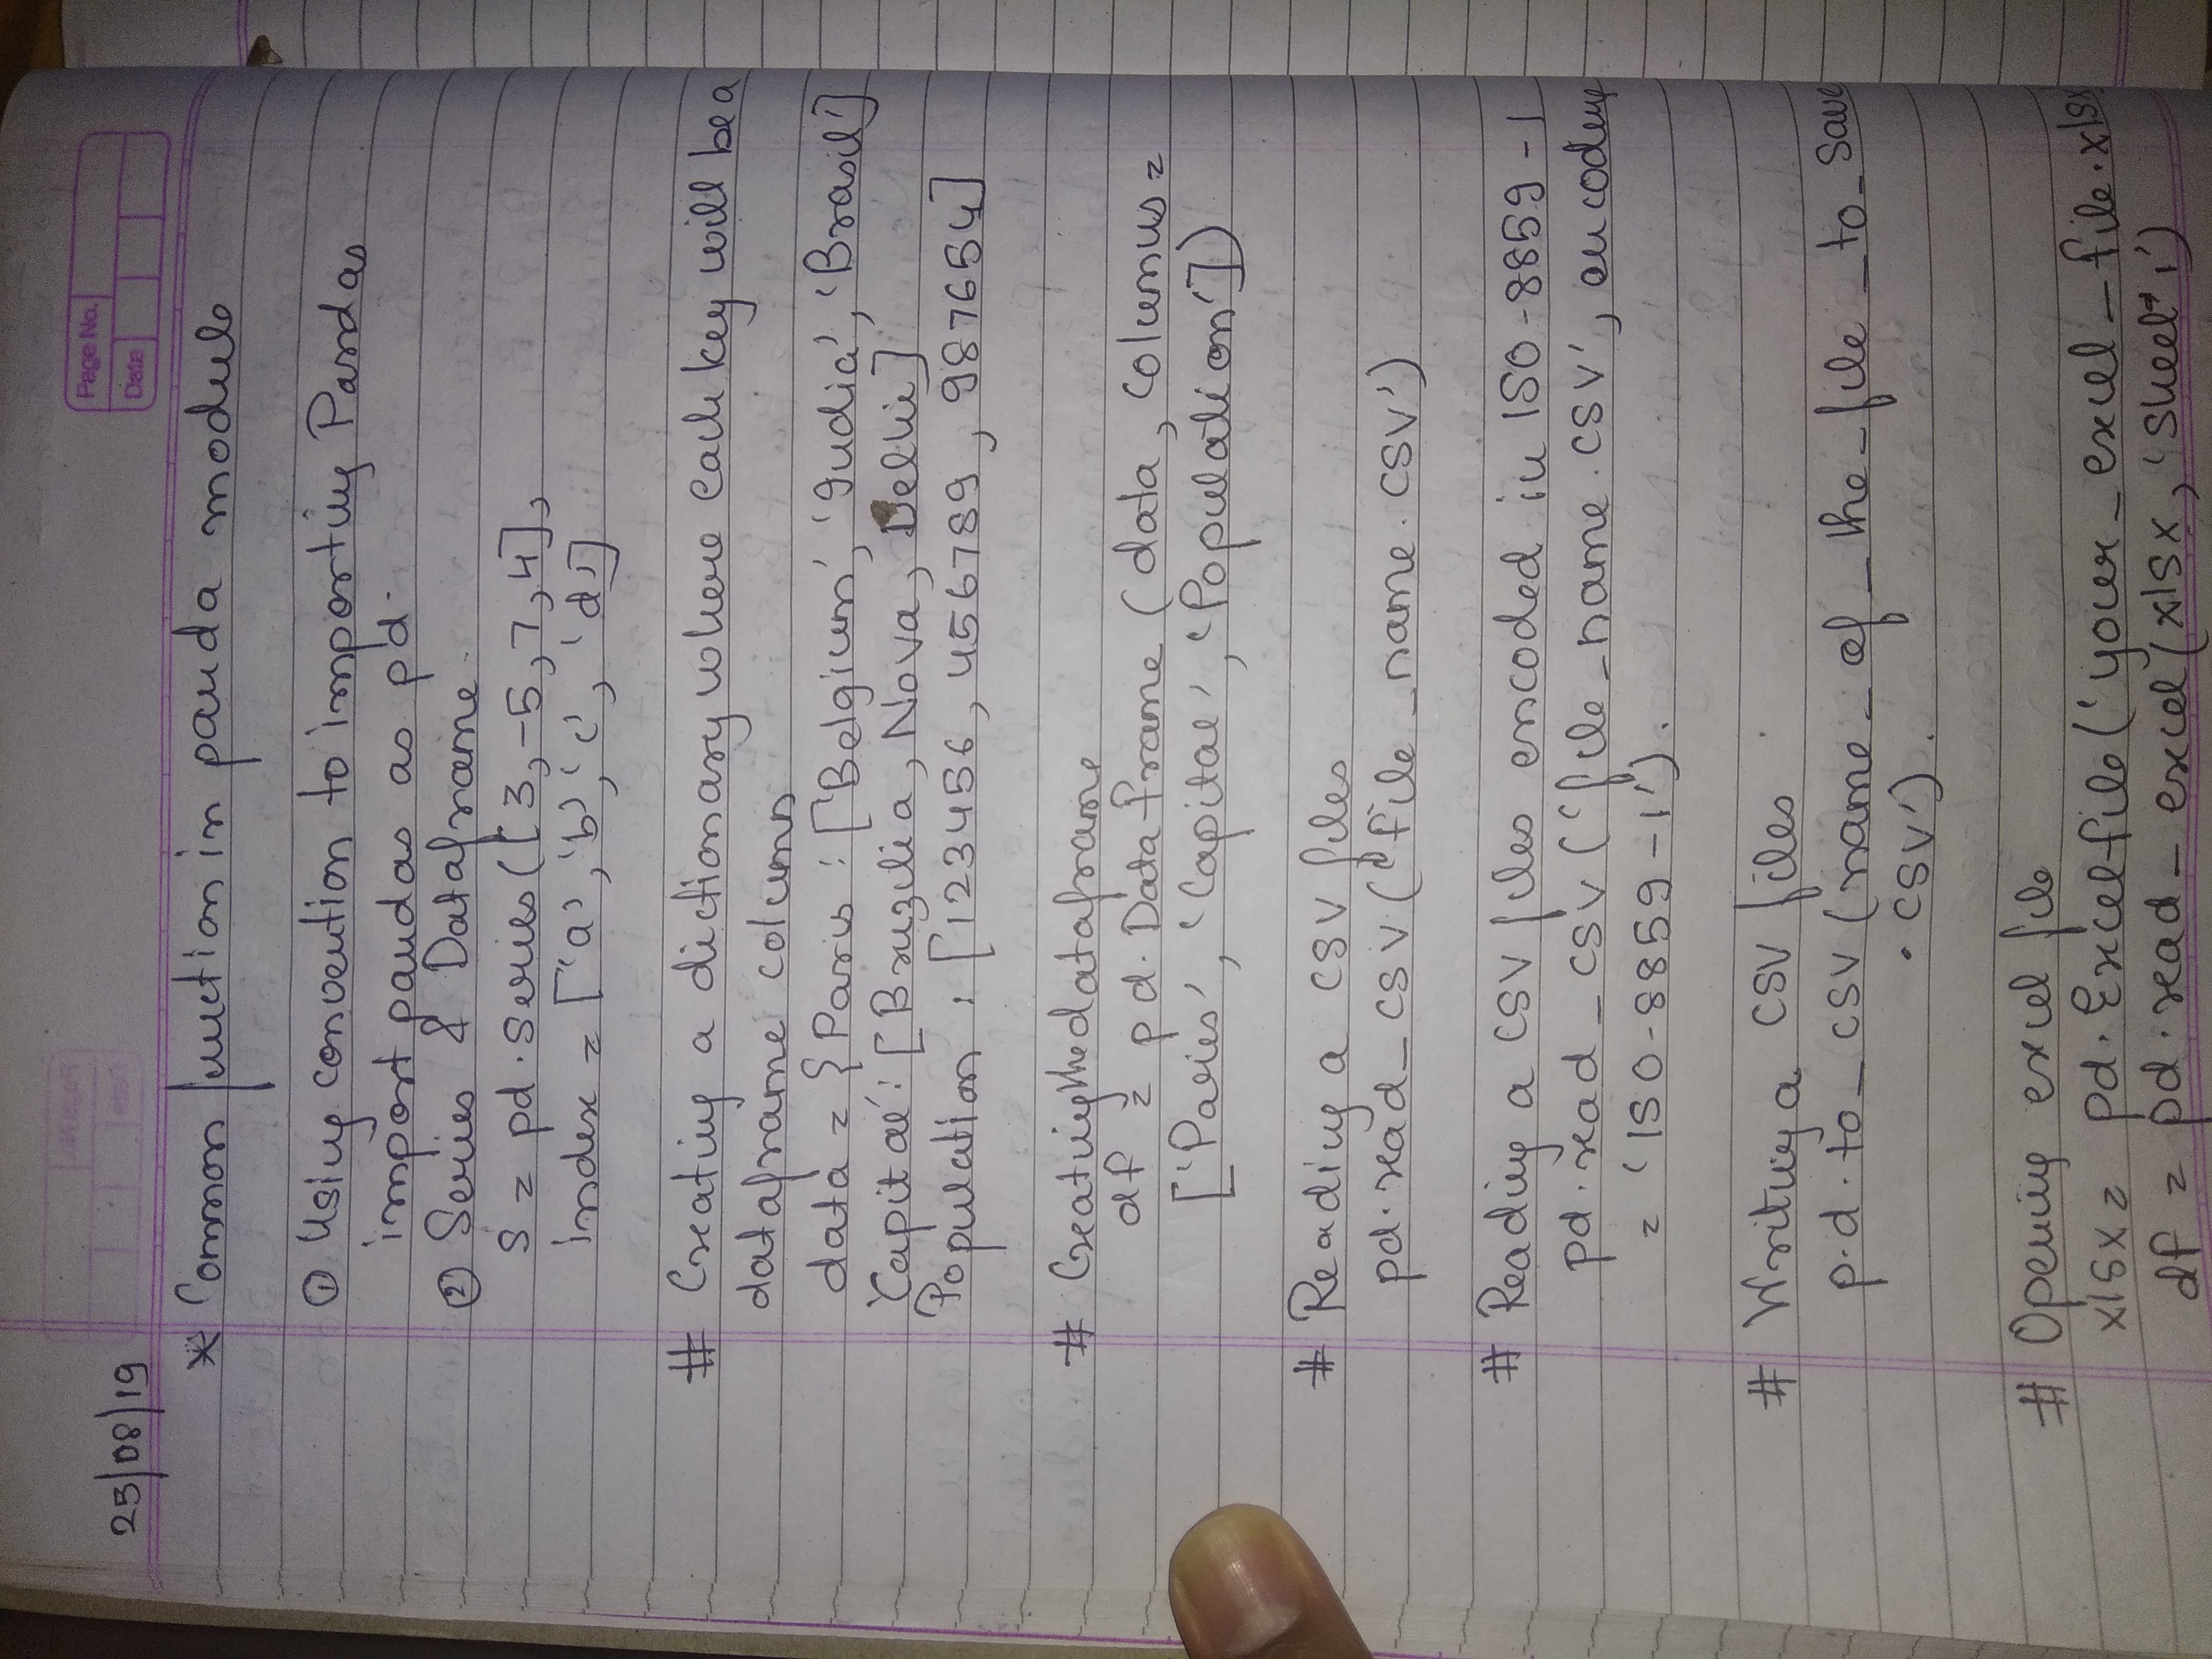 Page No.
Date
25/08/19
* Common function in panda module
① Using convention to importing Pandas
import pandas as pd.
② Series & Dataframe.
S = pd.series([3,-5,7,4],
index = ['a','b','c','d']
# Creating a dictionary where each key will be a
dataframe column
data = {Paris : ['Belgium', 'India', 'Brasil']
'Capital' : [Bruzulia, Nova, Delhi]
Population : [123456, 456789, 987654]
# Creating the dataframe
df = pd.Dataframe (data, columns =
['Paries', 'Capital', 'Population'])
# Reading a CSV files
pd.read_csv ('file_name.csv')
# Reading a CSV files encoded in ISO-8859-1
pd.read_csv ('file_name.csv', encoding
= 'ISO-8859-1').
# Writing a CSV files
p.d.to_csv (name_of_the_file_to_save
.csv').
# Opening exel file
xlsx = pd.Excelfile('your_excel_file.xlsx
df = pd.read_excel(xlsx, 'sheet1')